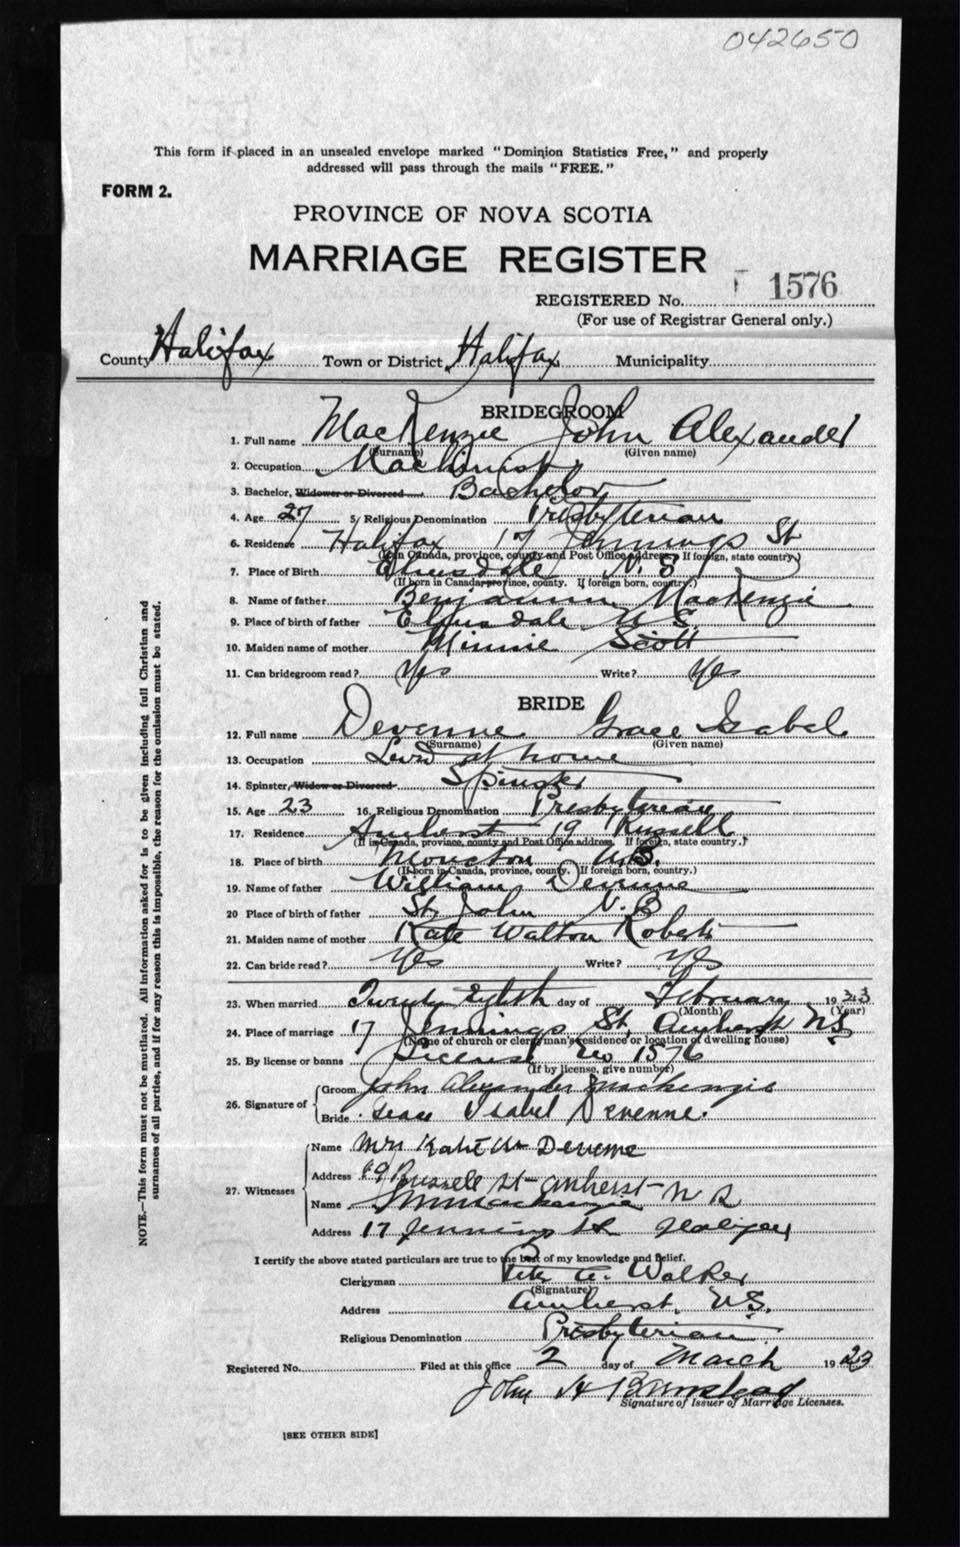 042650
This form if placed in an unsealed envelope marked "Dominion Statistics Free," and properly
addressed will pass through the mails "FREE."
FORM 2.
PROVINCE OF NOVA SCOTIA
MARRIAGE REGISTER
REGISTERED No. 1576
(For use of Registrar General only.)
County Halifax Town or District Halifax Municipality
BRIDEGROOM
1. Full name MacKenzie John Alexander
(Surname) (Given name)
2. Occupation Machinist
3. Bachelor, Widower or Divorced Bachelor
4. Age 27 5. Religious Denomination Presbyterian
6. Residence Halifax 17 Jennings St
(If in Canada, province, county and Post Office address. If foreign, state country.)
7. Place of Birth Elmsdale N.S
(If born in Canada, province, county. If foreign born, country.)
8. Name of father Benjamin MacKenzie
9. Place of birth of father Elmsdale N.S.
10. Maiden name of mother Minnie Scott
11. Can bridegroom read? Yes Write? Yes
BRIDE
12. Full name Devenne Grace Isabel
(Surname) (Given name)
13. Occupation at home
14. Spinster, Widow or Divorced Spinster
15. Age 23 16. Religious Denomination Presbyterian
17. Residence Amherst 19 Russell
(If in Canada, province, county and Post Office address. If foreign, state country.)
18. Place of birth Moncton N.B.
(If born in Canada, province, county. If foreign born, country.)
19. Name of father William Devenne
20 Place of birth of father St. John N.B
21. Maiden name of mother Kate Walton Roberts
22. Can bride read? Yes Write? Yes
23. When married Twenty Eighth day of February 1923
(Month) (Year)
24. Place of marriage 17 Jennings St, Amherst NS
(Name of church or clergyman's residence or location of dwelling house)
25. By license or banns License No 1576
(If by license, give number)
26. Signature of
Groom John Alexander Mackenzie
Bride Grace Isabel Devenne.
27. Witnesses
Name Mrs Kate W Devenne
Address 19 Russell St Amherst N S
Name Mackenzie
Address 17 Jennings St Halifax
I certify the above stated particulars are true to the best of my knowledge and belief.
Clergyman A. Walker
(Signature)
Address Amherst, N.S.
Religious Denomination Presbyterian
Registered No. Filed at this office 2 day of March 1923
John H Barnstead
Signature of Issuer of Marriage Licenses.
[SEE OTHER SIDE]
NOTE.—This form must not be mutilated. All information asked for is to be given including full Christian and
surnames of all parties, and if for any reason this is impossible, the reason for the omission must be stated.